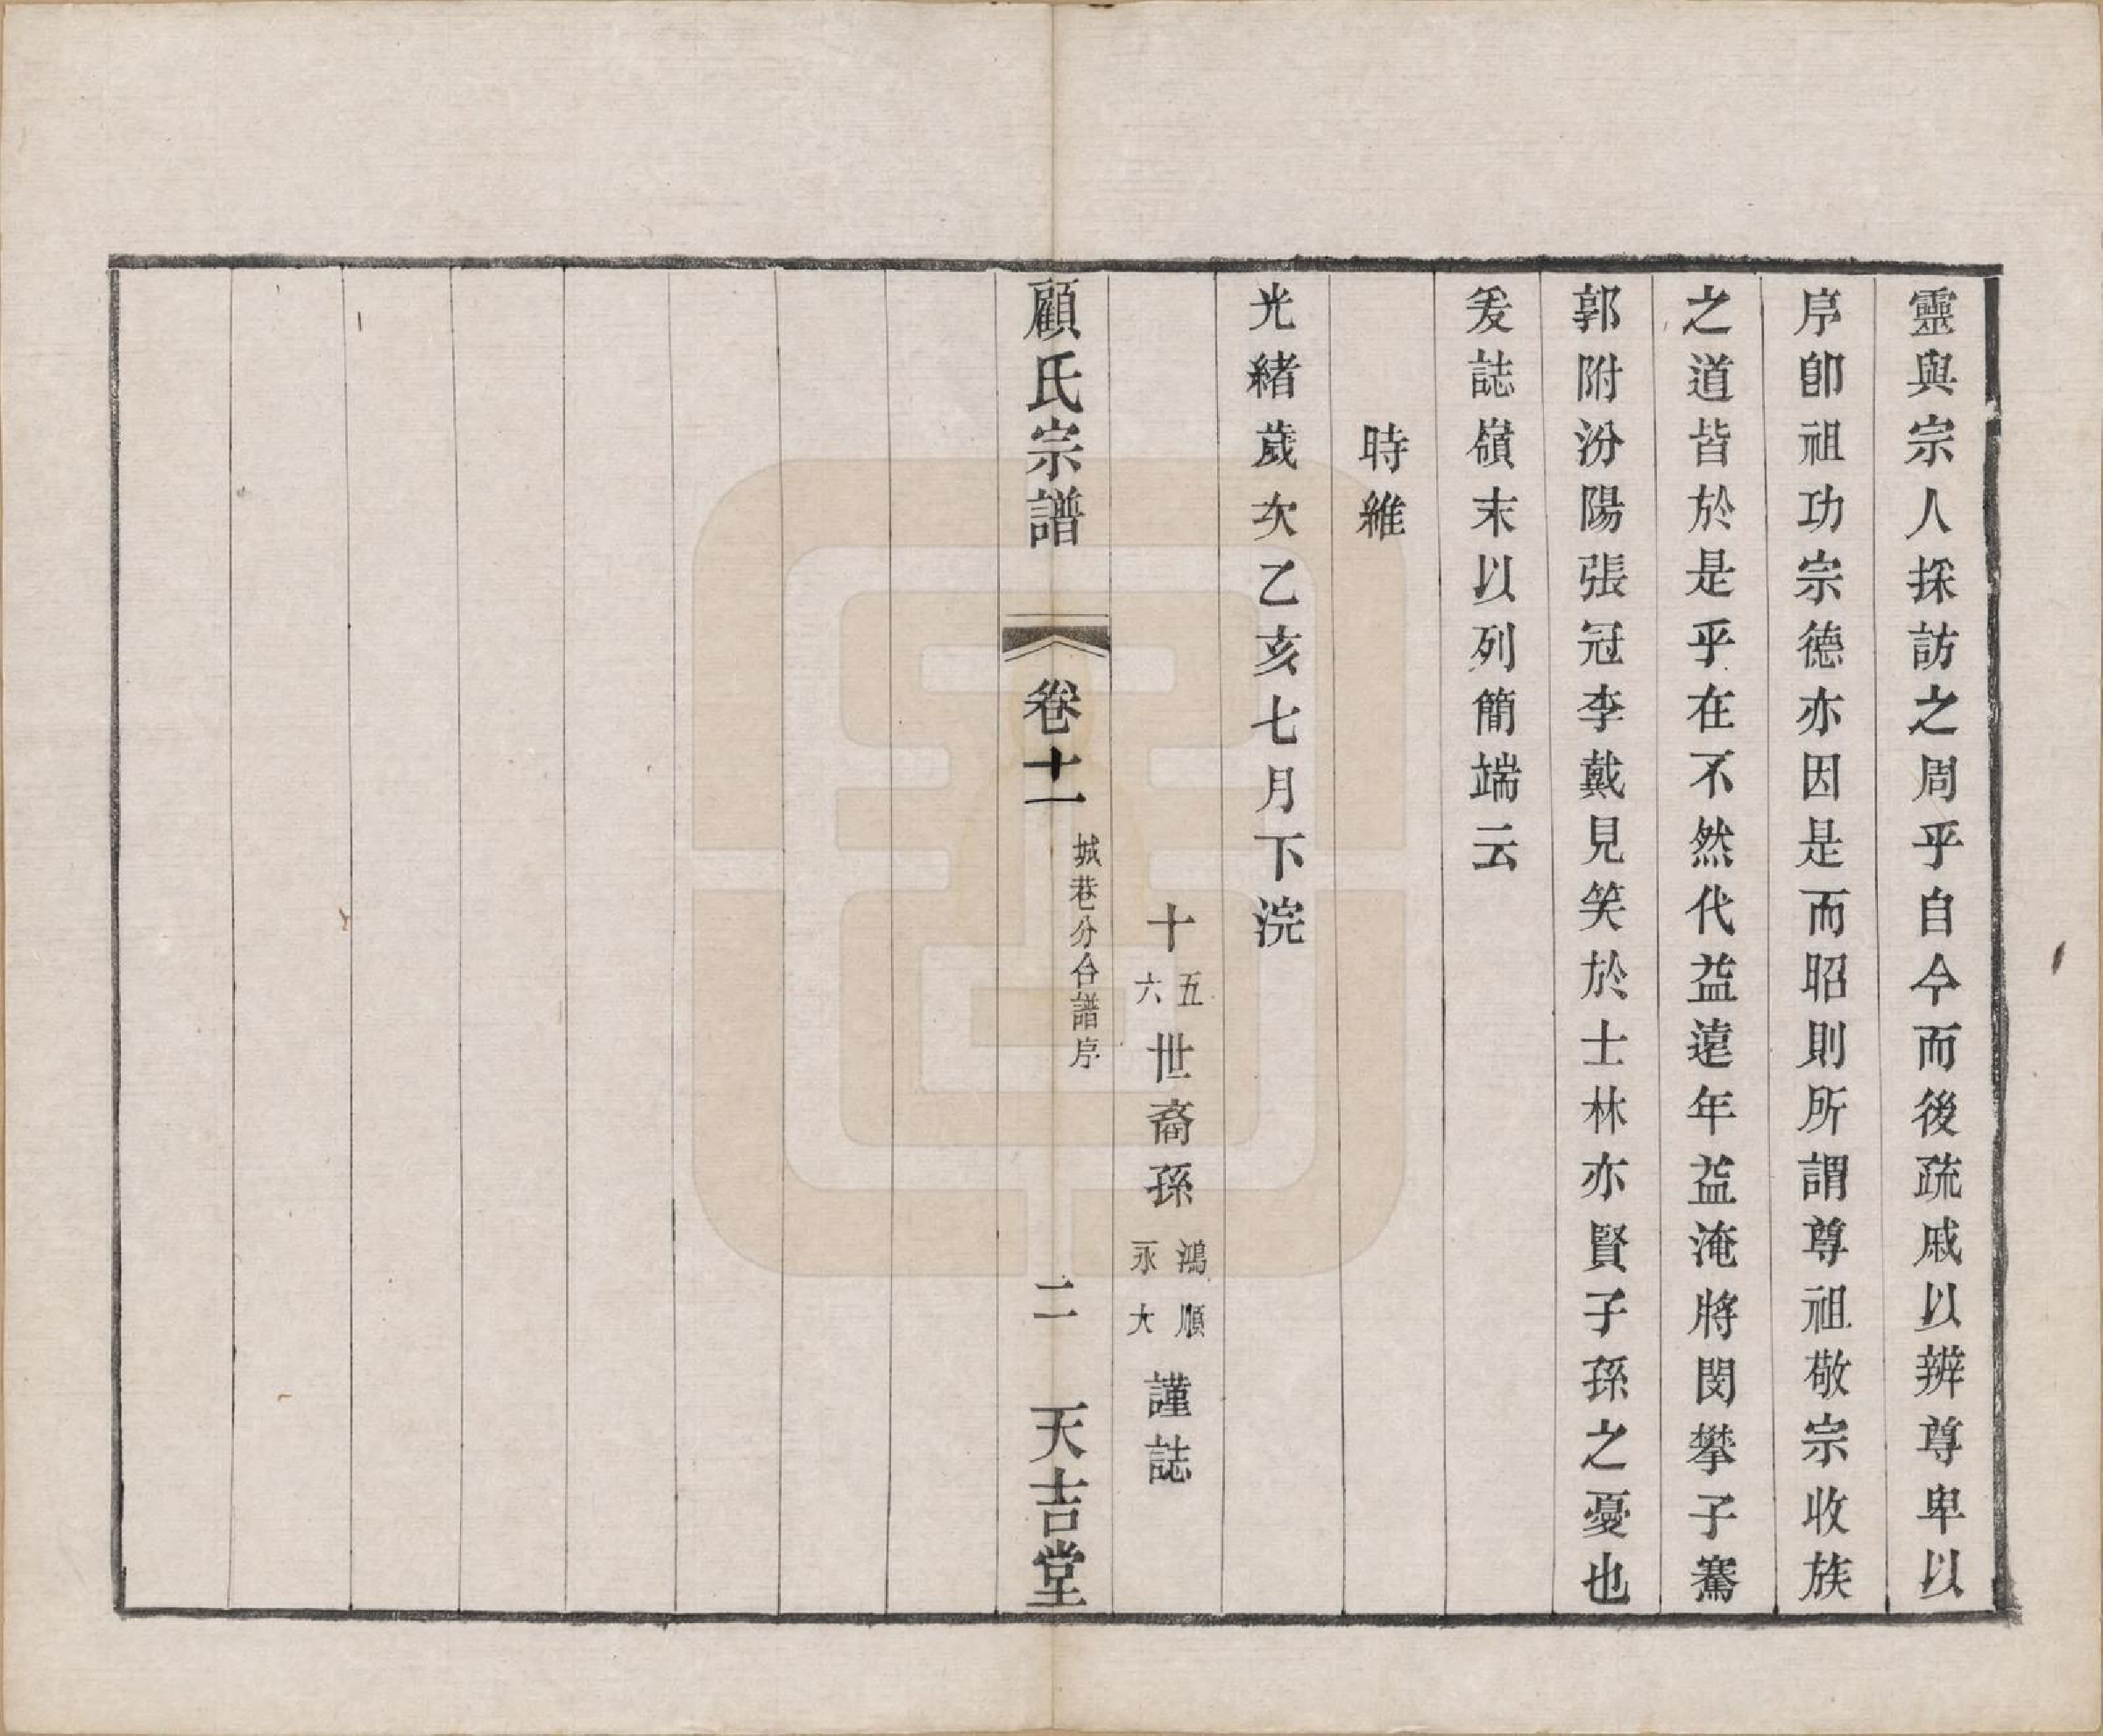 靈與宗人採訪之周乎自今而後疏戚以辨尊卑以
序卽祖功宗德亦因是而昭則所謂尊祖敬宗收族
之道皆於是乎在不然代益遠年益淹將閔攀子騫
郭附汾陽張冠李戴見笑於士林亦賢子孫之憂也
爰誌嶺末以列簡端云
時維
光緒歲次乙亥七月下浣
十五六世裔孫鴻順永大謹誌
顧氏宗譜 卷十一 城巷分合譜序 二 天吉堂